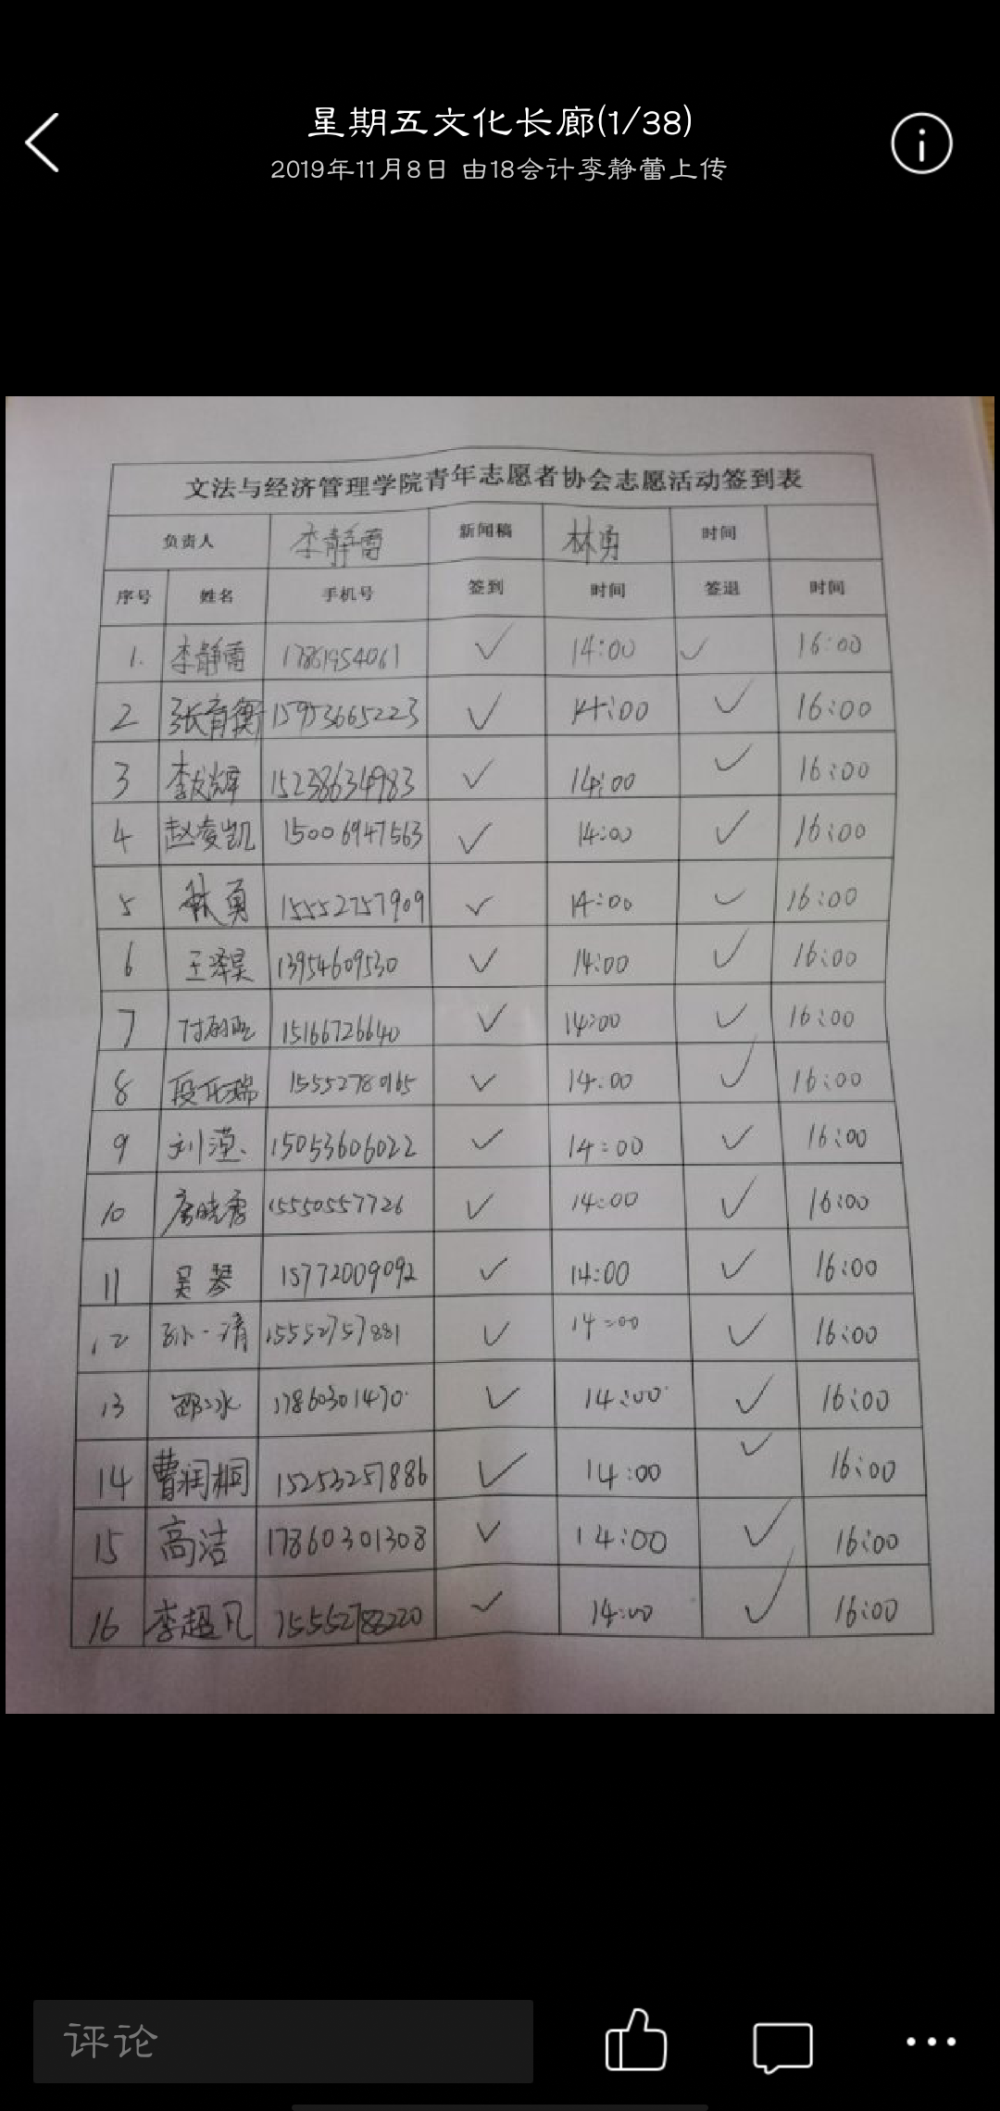 星期五文化长廊(1/38)
2019年11月8日 由18会计李静蕾上传
文法与经济管理学院青年志愿者协会志愿活动签到表
负责人 李静蕾 新闻稿 林勇 时间
序号 姓名 手机号 签到 时间 签退 时间
1. 李静蕾 17861954061 ✓ 14:00 ✓ 16:00
2 张育衡 15953665223 ✓ 14:00 ✓ 16:00
3 李龙辉 15238634983 ✓ 14:00 ✓ 16:00
4 赵凌凯 15006947563 ✓ 14:00 ✓ 16:00
5 林勇 15552757909 ✓ 14:00 ✓ 16:00
6 王泽昊 13954609530 ✓ 14:00 ✓ 16:00
7 15166726640 ✓ 14:00 ✓ 16:00
8 段正瑞 15552780165 ✓ 14:00 ✓ 16:00
9 刘滢 15053606022 ✓ 14:00 ✓ 16:00
10 唐晓露 15550557726 ✓ 14:00 ✓ 16:00
11 吴琴 15772009092 ✓ 14:00 ✓ 16:00
12 孙一清 15552757881 ✓ 14:00 ✓ 16:00
13 邵冰 17860301470 ✓ 14:00 ✓ 16:00
14 曹润桐 15253257886 ✓ 14:00 ✓ 16:00
15 高洁 17860301308 ✓ 14:00 ✓ 16:00
16 李超凡 15552783220 ✓ 14:00 ✓ 16:00
评论